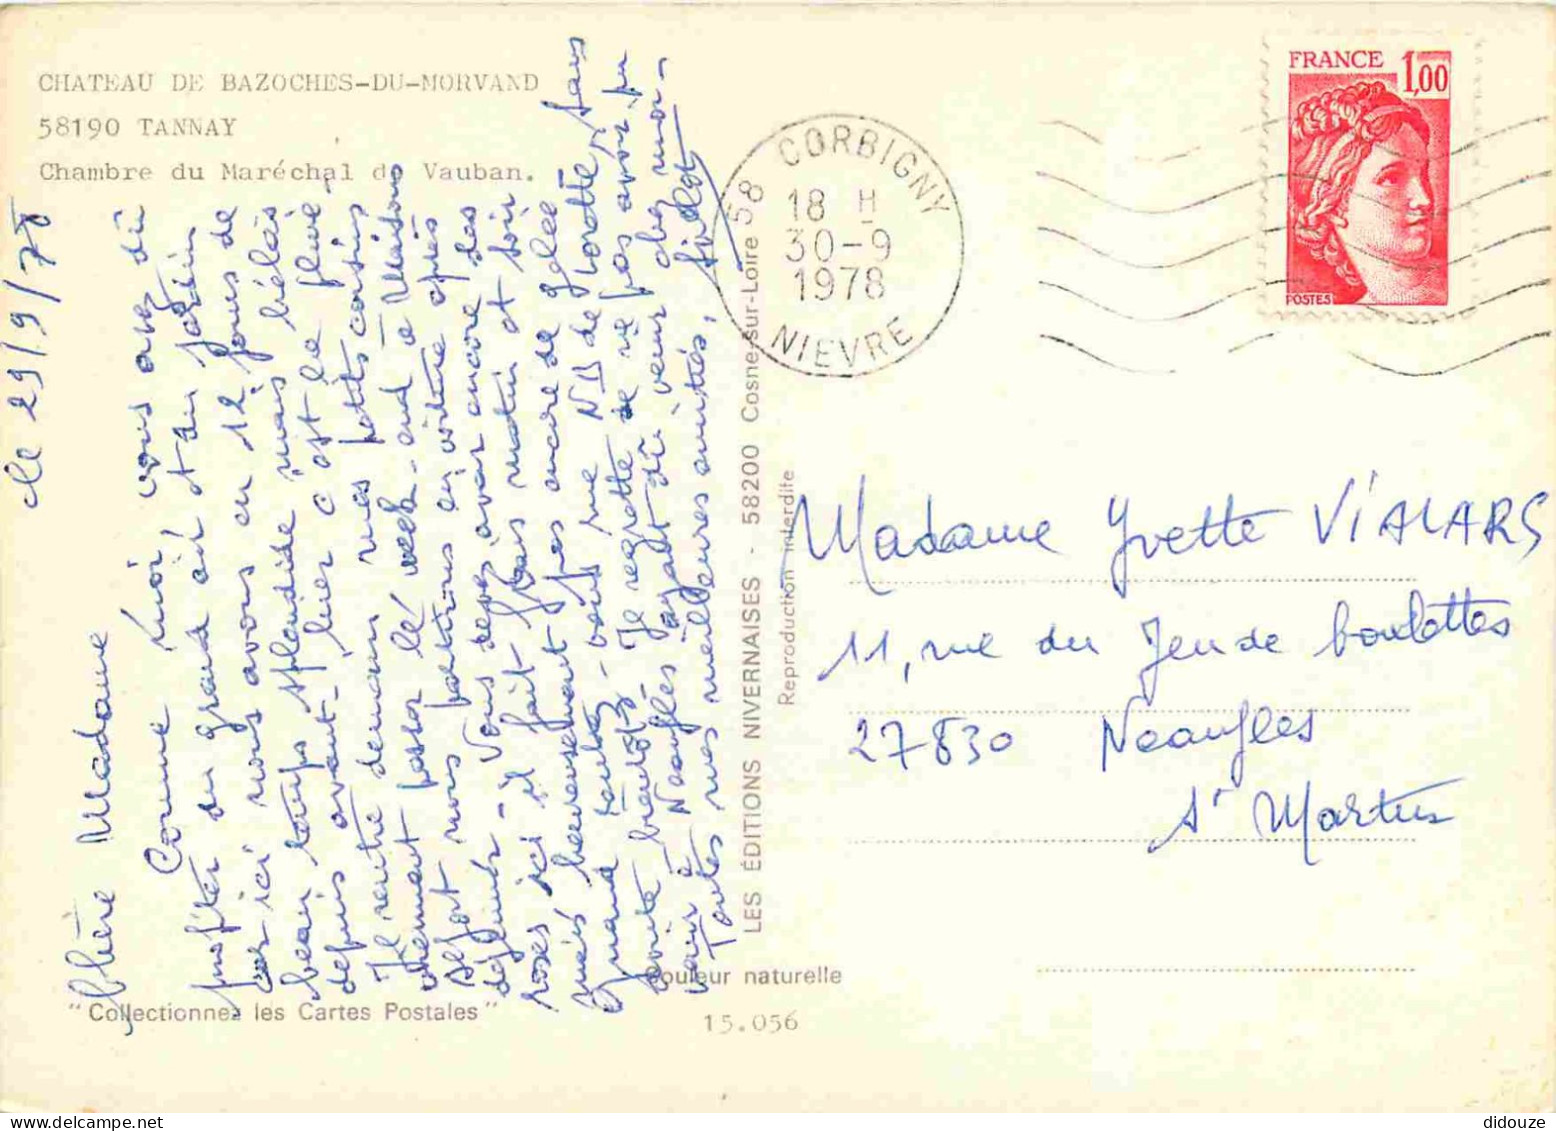 CHATEAU DE BAZOCHES-DU-MORVAND
58190 TANNAY
Chambre du Maréchal de Vauban.
le 29/9/78
Chère Madame
Comme moi vous avez dû
profiter du grand air et du jardin
car ici nous avons eu 12 jours de
beau temps splendide mais hélas
depuis avant-hier c'est la pluie
Je rentre demain mes petits cousins
viennent passer le week-end à
repart nous partirons en voiture après
déjeuner - Vous devez avoir encore des
roses ici il fait frais matin et soir
mais heureusement pas encore de gelée
Quand rentrez-vous rue N D de Lorette, sans
doute bientôt - Je regrette de ne pas avoir pu
venir à Neaufles ayant dû venir chez moi -
Toutes mes meilleures amitiés,
"Collectionnez les Cartes Postales"
Couleur naturelle
15.056
LES ÉDITIONS NIVERNAISES - 58200 Cosne-sur-Loire
Reproduction interdite
58 CORBIGNY
18 H
30-9
1978
NIEVRE
FRANCE 1,00
POSTES
Madame Yvette VIALARS
11, rue du Jeu de boulettes
27830 Neaufles
St Martin
didouze